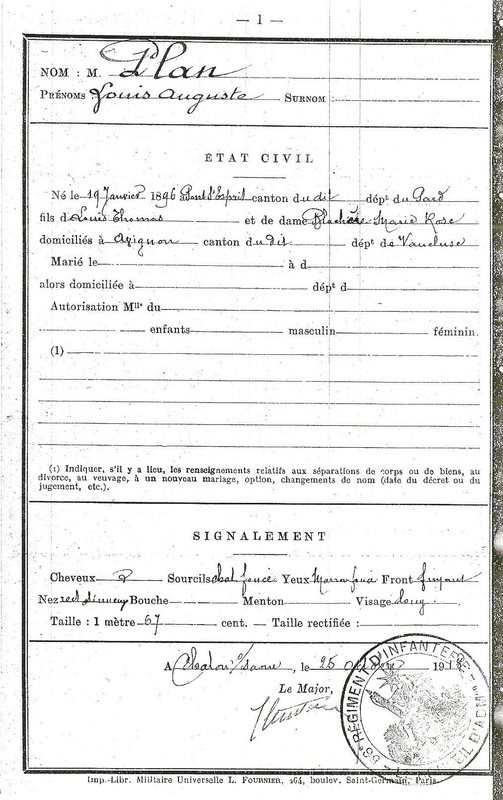 — 1 —
NOM : M. Plan
PRÉNOMS Louis Auguste SURNOM :
ÉTAT CIVIL
Né le 19 Janvier 1896 à Pont St Esprit canton dudit dépt du Gard
fils de Louis Thomas et de dame Blachère Marie Rose
domiciliés à Avignon canton dudit dépt de Vaucluse
Marié le à d
alors domiciliée à dépt d
Autorisation Mlle du
enfants masculin féminin.
(1)
(1) Indiquer, s'il y a lieu, les renseignements relatifs aux séparations de corps ou de biens, au
divorce, au veuvage, à un nouveau mariage, option, changements de nom (date du décret ou du
jugement, etc.).
SIGNALEMENT
Cheveux Sourcils chat foncé Yeux Front fuyant
Nez rect Bouche Menton Visage long
Taille : 1 mètre 67 cent. — Taille rectifiée :
A Chalon s/Saone, le 25 191
Le Major,
RÉGIMENT D'INFANTERIE
Imp.-Libr. Militaire Universelle L. FOURNIER, 264, boulev. Saint-Germain, Paris.